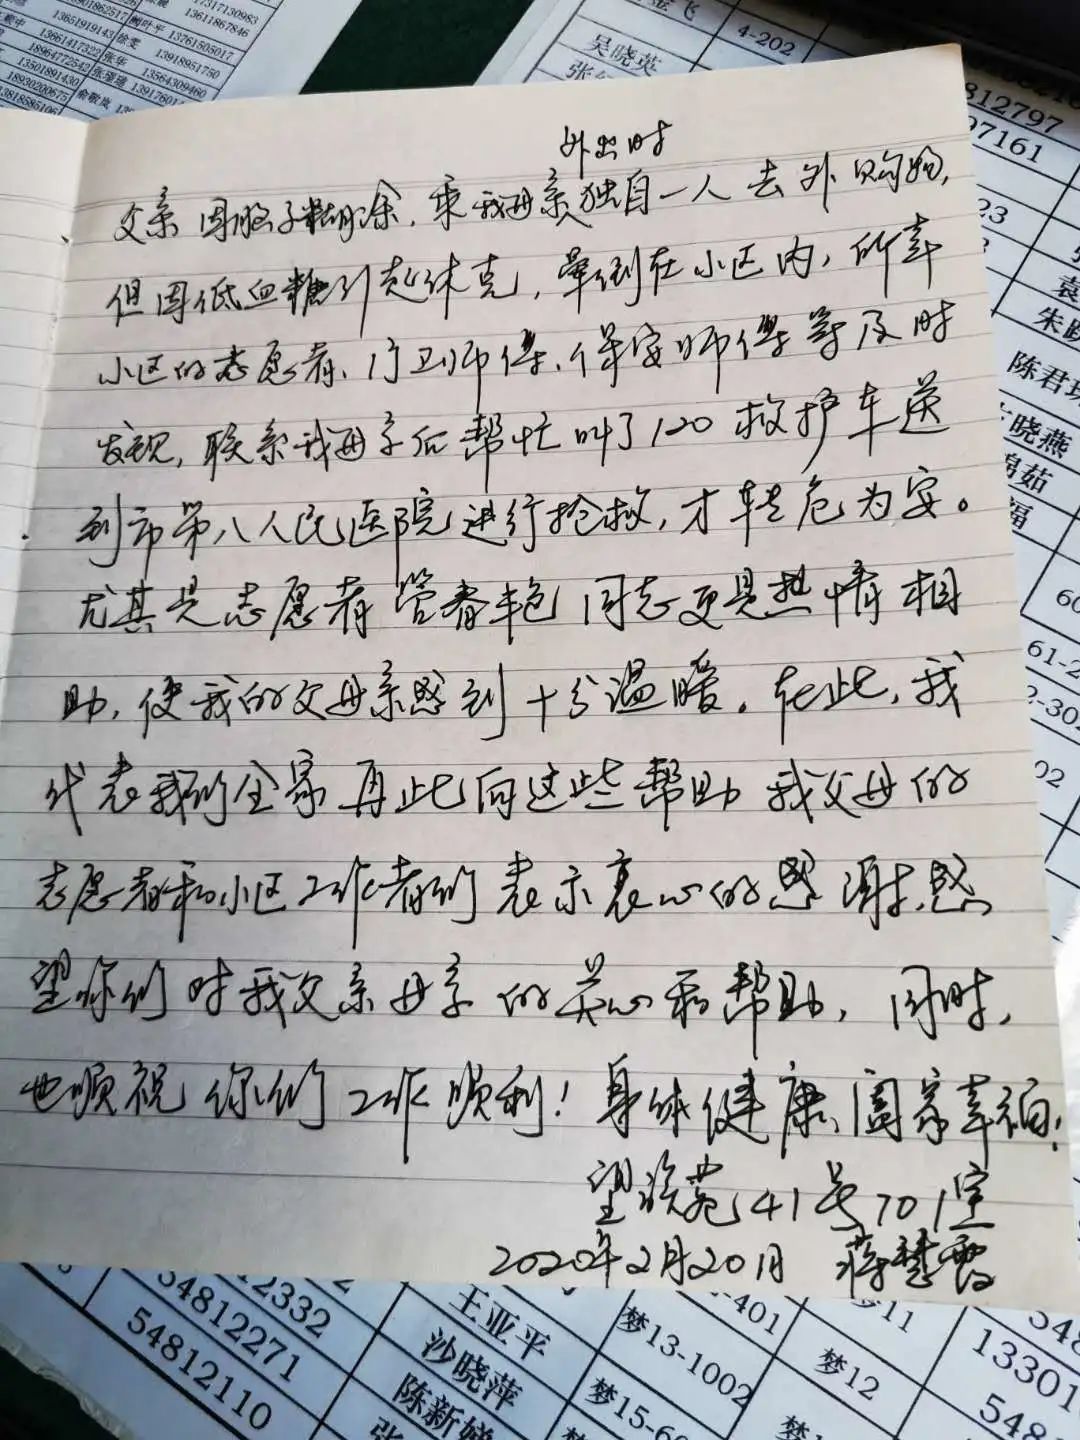 17317130983
13611867846
13651919143
树叶平
13761505017
13661417322
徐雯
13918951750
18964772542
张华
13564309460
13501891430
18930200675
13818585106
4-202
吴晓英
812797
97161
23
袁
陈君
晓燕
茹
福
60
61-2
2-302
02
外出时
父亲因脑子糊涂，乘我母亲独自一人去外购物，
但因低血糖引起休克，晕倒在小区内，所幸
小区的志愿者、门卫师傅、保安师傅等及时
发现，联系我母亲后帮忙叫了120救护车送
到市第八人民医院进行抢救，才转危为安。
尤其是志愿者管春艳同志更是热情相
助，使我的父母亲感到十分温暖。在此，我
代表我们全家再此向这些帮助我父母的
志愿者和小区工作者们表示衷心的感谢，感
望你们对我父亲母亲的关心和帮助，同时，
也顺祝你们工作顺利！身体健康、阖家幸福！
望族苑41号701室
2020年2月20日 蒋慧霞
12332
王亚平
401
梦11
54812271
沙晓萍
梦13-1002
梦12
13301
54812110
陈新
梦15-60
548